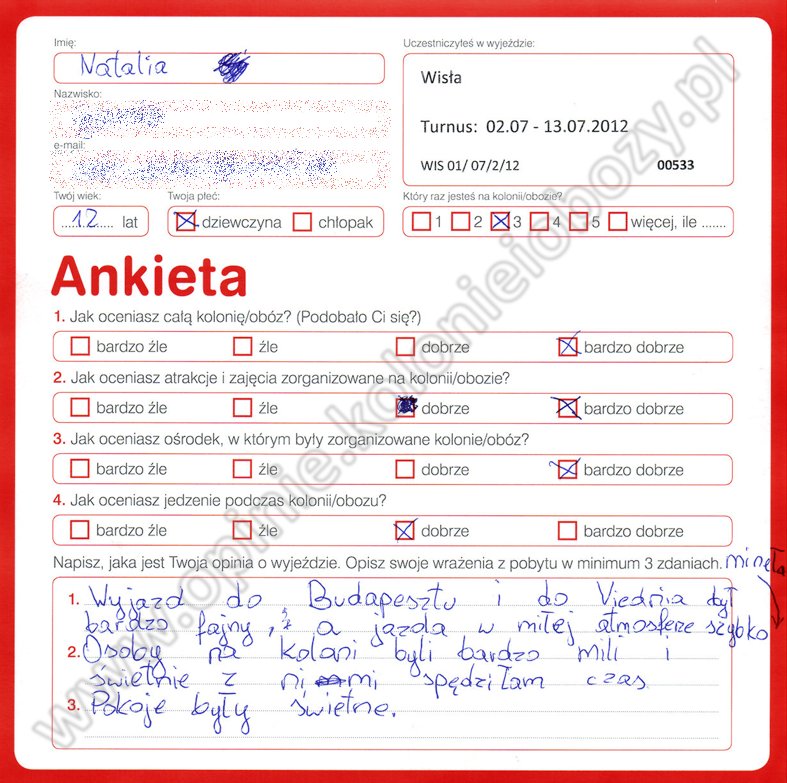 Imię:
Natalia
Uczestniczyłeś w wyjeździe:
Wisła
Turnus: 02.07 - 13.07.2012
WIS 01/ 07/2/12 00533
Nazwisko:
e-mail:
Twój wiek:
12 lat
Twoja płeć:
dziewczyna chłopak
Który raz jesteś na kolonii/obozie?
1 2 3 4 5 więcej, ile .......
Ankieta
1. Jak oceniasz całą kolonię/obóz? (Podobało Ci się?)
bardzo źle źle dobrze bardzo dobrze
2. Jak oceniasz atrakcje i zajęcia zorganizowane na kolonii/obozie?
bardzo źle źle dobrze bardzo dobrze
3. Jak oceniasz ośrodek, w którym były zorganizowane kolonie/obóz?
bardzo źle źle dobrze bardzo dobrze
4. Jak oceniasz jedzenie podczas kolonii/obozu?
bardzo źle źle dobrze bardzo dobrze
Napisz, jaka jest Twoja opinia o wyjeździe. Opisz swoje wrażenia z pobytu w minimum 3 zdaniach.
minęła
1. Wyjazd do Budapesztu i do Viednia był
bardzo fajny, a jazda w miłej atmosferze szybko
2. Osoby na koloni byli bardzo mili i
świetnie z nimi spędziłam czas
3. Pokoje były świetne.
www.opinie.kolonieiobozy.pl